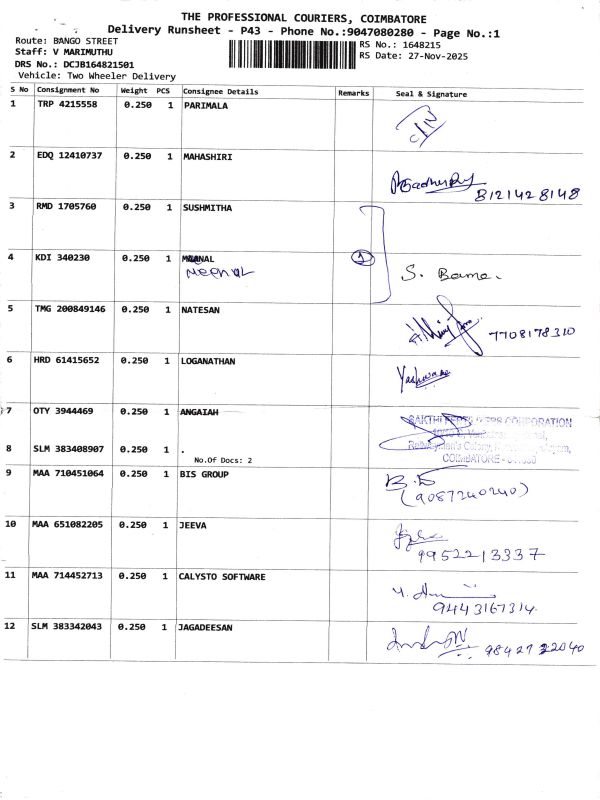 THE PROFESSIONAL COURIERS, COIMBATORE
Delivery Runsheet - P43 - Phone No.:9047080280 - Page No.:1
Route: BANGO STREET
RS No.: 1648215
Staff: V MARIMUTHU
RS Date: 27-Nov-2025
DRS No.: DCJB164821501
Vehicle: Two Wheeler Delivery
S No Consignment No Weight PCS Consignee Details Remarks Seal & Signature
1 TRP 4215558 0.250 1 PARIMALA
2 EDQ 12410737 0.250 1 MAHASHIRI
8121428148
3 RMD 1705760 0.250 1 SUSHMITHA
4 KDI 340230 0.250 1
S. Bama.
5 TMG 200849146 0.250 1 NATESAN
7708178310
6 HRD 61415652 0.250 1 LOGANATHAN
7 OTY 3944469 0.250 1 ANGAIAH
CORPORATION
COIMBATORE
8 SLM 383408907 0.250 1 .
No.Of Docs: 2
9 MAA 710451064 0.250 1 BIS GROUP
(9087240240)
10 MAA 651082205 0.250 1 JEEVA
9952213337
11 MAA 714452713 0.250 1 CALYSTO SOFTWARE
9443167314
12 SLM 383342043 0.250 1 JAGADEESAN